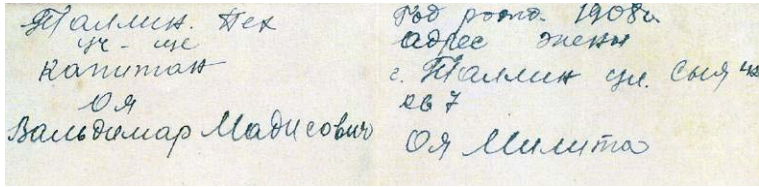 Таллин. Пех
уч-ще
капитан
Оя
Вальдимар Мадисович
Год рожд. 1908г
адрес жены
г. Таллин ул. Сыя
кв 7
Оя Милита